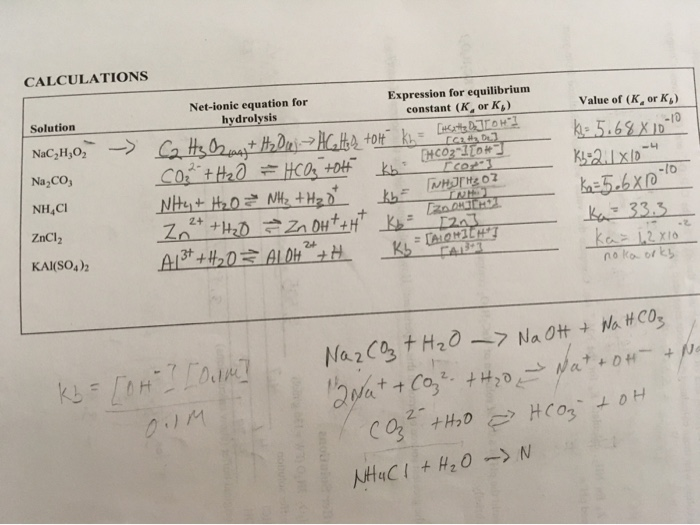 CALCULATIONS
Solution Net-ionic equation for hydrolysis Expression for equilibrium constant (Ka or Kb) Value of (Ka or Kb)
NaC₂H₃O₂ → C₂H₃O₂⁻(aq) + H₂O(l) → HC₂H₃O₂ + OH⁻ Kb = [HC₂H₃O₂][OH⁻] / [C₂H₃O₂] Kb = 5.68 x 10⁻¹⁰
Na₂CO₃ CO₃²⁻ + H₂O ⇌ HCO₃⁻ + OH⁻ Kb = [HCO₃⁻][OH⁻] / [CO₃²⁻] Kb = 2.1 x 10⁻⁴
NH₄Cl NH₄+ H₂O ⇌ NH₃ + H₃O⁺ Kb = [NH₃][H₃O] / [NH₄] Ka = 5.6 x 10⁻¹⁰
ZnCl₂ Zn²⁺ + H₂O ⇌ ZnOH⁺ + H⁺ Kb = [ZnOH][H⁺] / [Zn] Ka = 33.3
KAl(SO₄)₂ Al³⁺ + H₂O ⇌ AlOH²⁺ + H Kb = [AlOH][H⁺] / [Al³⁺] Ka = 1.2 x 10⁻²
no ka or kb
Na₂CO₃ + H₂O → NaOH + NaHCO₃
Kb = [OH⁻][0.1M] / 0.1M
2Na⁺ + CO₃²⁻ + H₂O ⇌ Na⁺ + OH⁻ +
CO₃²⁻ + H₂O ⇌ HCO₃⁻ + OH
NH₄Cl + H₂O → N